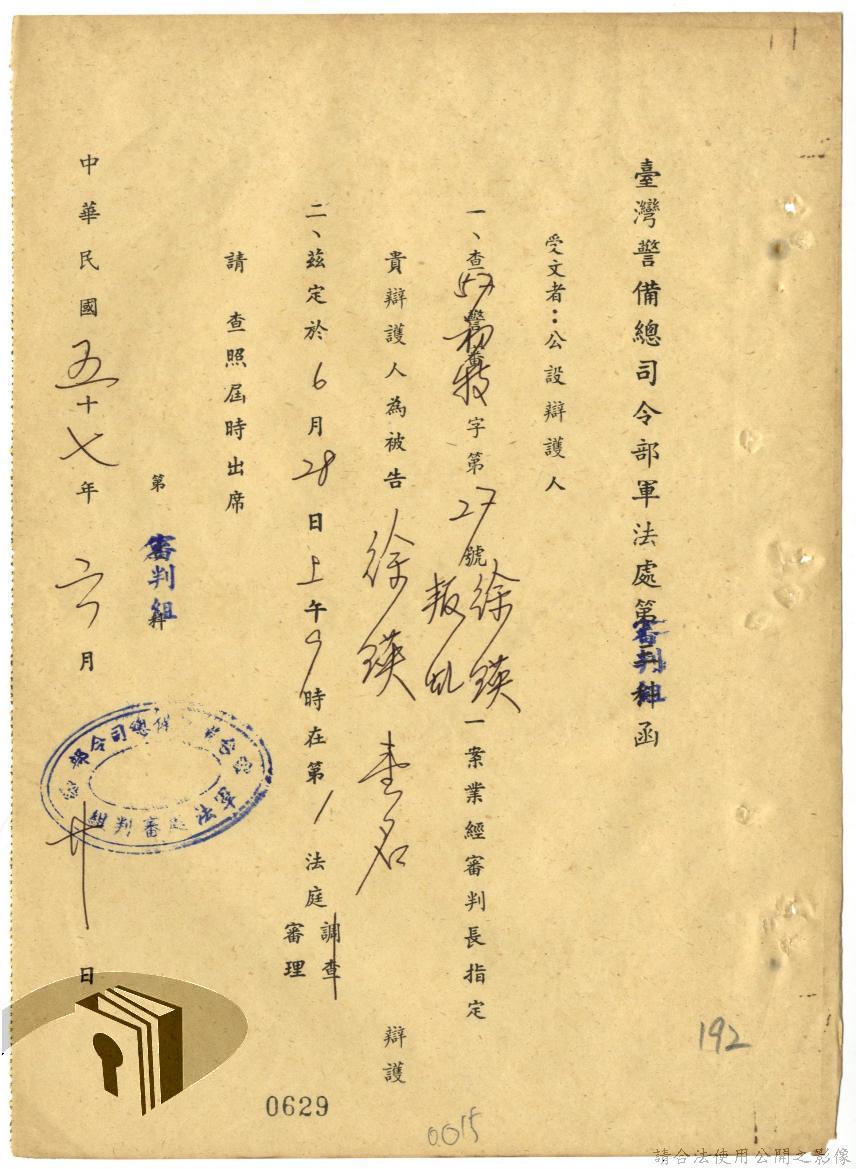 臺灣警備總司令部軍法處第審判組函
受文者：公設辯護人
一、查57警審初特字第27號徐鍈叛乱一案業經審判長指定
貴辯護人為被告徐鍈壹名辯護
二、茲定於6月28日上午9時在第1法庭調查審理
請查照屆時出席
第審判組科
中華民國五十七年六月廿日
部令司總備
軍法處審判組
192
0629
0.015
請合法使用公開之影像